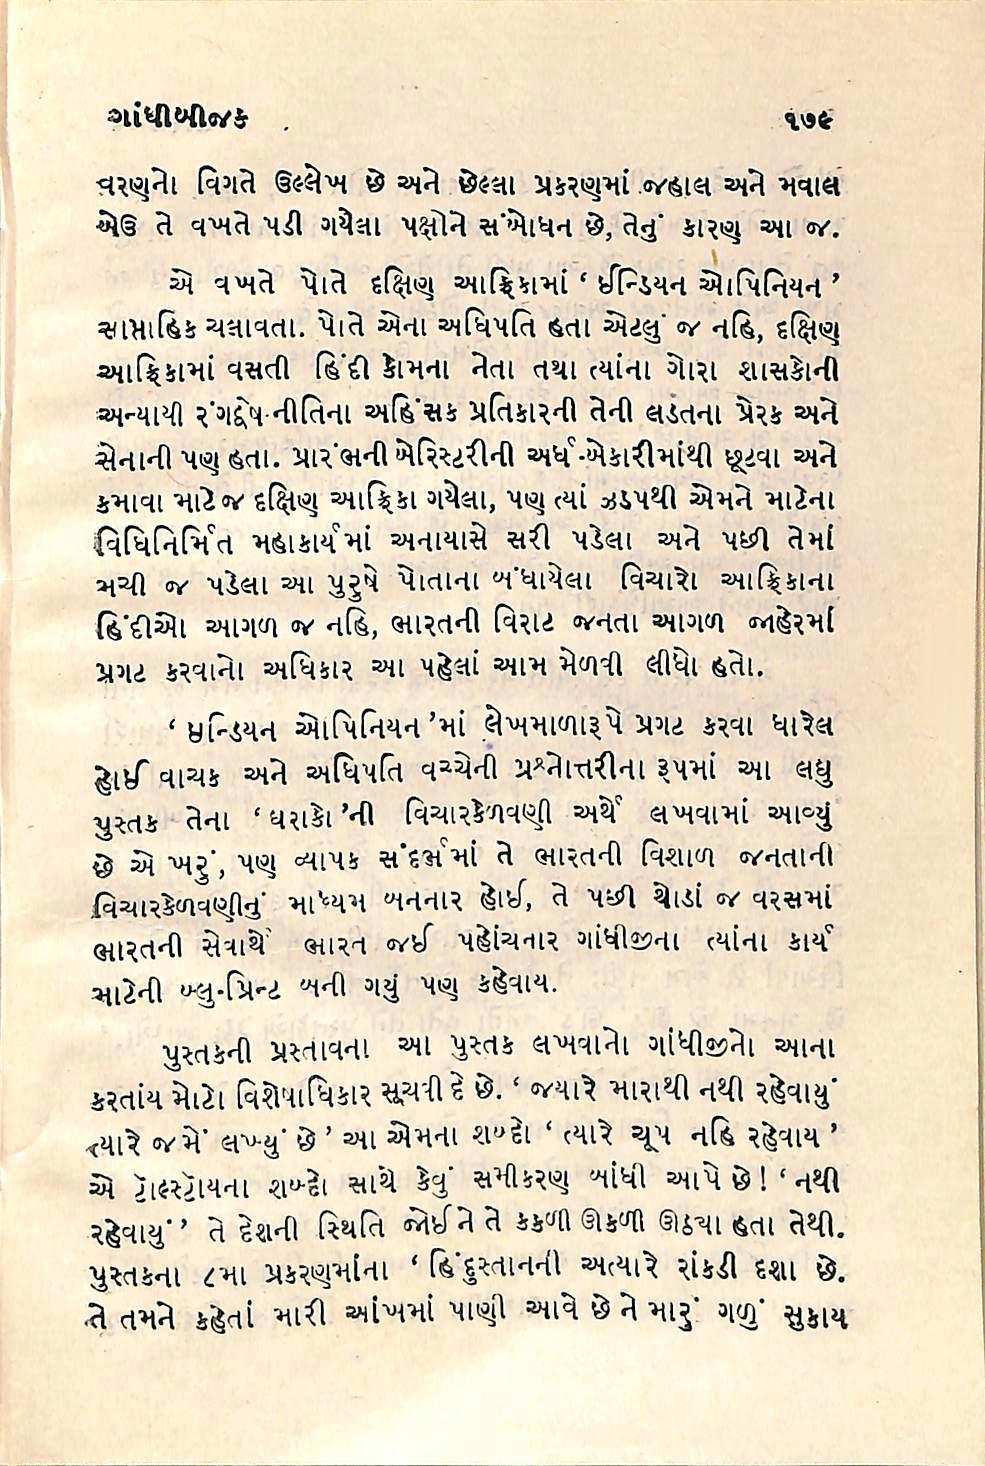 ગાંધીબીજક ૧૭૯
વરણનો વિગતે ઉલ્લેખ છે અને છેલ્લા પ્રકરણમાં જહાલ અને મવાલ
એઉ તે વખતે પડી ગયેલા પક્ષોને સંબોધન છે, તેનું કારણ આ જ.
એ વખતે પોતે દક્ષિણ આફ્રિકામાં ‘ ઈન્ડિયન ઓપિનિયન ’
સાપ્તાહિક ચલાવતા. પોતે એના અધિપતિ હતા એટલું જ નહિ, દક્ષિણ
આફ્રિકામાં વસતી હિંદી કોમના નેતા તથા ત્યાંના ગોરા શાસકોની
અન્યાયી રંગદ્વેષ-નીતિના અહિંસક પ્રતિકારની તેની લડતના પ્રેરક અને
સેનાની પણ હતા. પ્રારંભની બેરિસ્ટરીની અર્ધ-બેકારીમાંથી છૂટવા અને
કમાવા માટે જ દક્ષિણ આફ્રિકા ગયેલા, પણ ત્યાં ઝડપથી એમને માટેના
વિધિનિર્મિત મહાકાર્યમાં અનાયાસે સરી પડેલા અને પછી તેમાં
મચી જ પડેલા આ પુરુષે પોતાના બંધાયેલા વિચારો આફ્રિકાના
હિંદીઓ આગળ જ નહિ, ભારતની વિરાટ જનતા આગળ જાહેરમાં
પ્રગટ કરવાનો અધિકાર આ પહેલાં આમ મેળવી લીધો હતો.
‘ ઇન્ડિયન ઓપિનિયન ’માં લેખમાળારૂપે પ્રગટ કરવા ધારેલ
હોઈ વાચક અને અધિપતિ વચ્ચેની પ્રશ્નોત્તરીના રૂપમાં આ લઘુ
પુસ્તક તેના ‘ ઘરાકો ’ની વિચારકેળવણી અર્થે લખવામાં આવ્યું
છે એ ખરું, પણ વ્યાપક સંદર્ભમાં તે ભારતની વિશાળ જનતાની
વિચારકેળવણીનું માધ્યમ બનનાર હોઈ, તે પછી થોડાં જ વરસમાં
ભારતની સેવાર્થે ભારત જઈ પહોંચનાર ગાંધીજીના ત્યાંના કાર્ય
માટેની બ્લુ-પ્રિન્ટ બની ગયું પણ કહેવાય.
પુસ્તકની પ્રસ્તાવના આ પુસ્તક લખવાનો ગાંધીજીનો આના
કરતાંય મોટો વિશેષાધિકાર સૂચવી દે છે. ‘ જ્યારે મારાથી નથી રહેવાયું
ત્યારે જ મેં લખ્યું છે ’ આ એમના શબ્દો ‘ ત્યારે ચૂપ નહિ રહેવાય ’
એ ટૉલ્સ્ટૉયના શબ્દો સાથે કેવું સમીકરણ બાંધી આપે છે! ‘ નથી
રહેવાયું ’ તે દેશની સ્થિતિ જોઈને તે કકળી ઊકળી ઊઠ્યા હતા તેથી.
પુસ્તકના ૮મા પ્રકરણમાંના ‘ હિંદુસ્તાનની અત્યારે રાંકડી દશા છે.
તે તમને કહેતાં મારી આંખમાં પાણી આવે છે ને મારું ગળું સુકાય